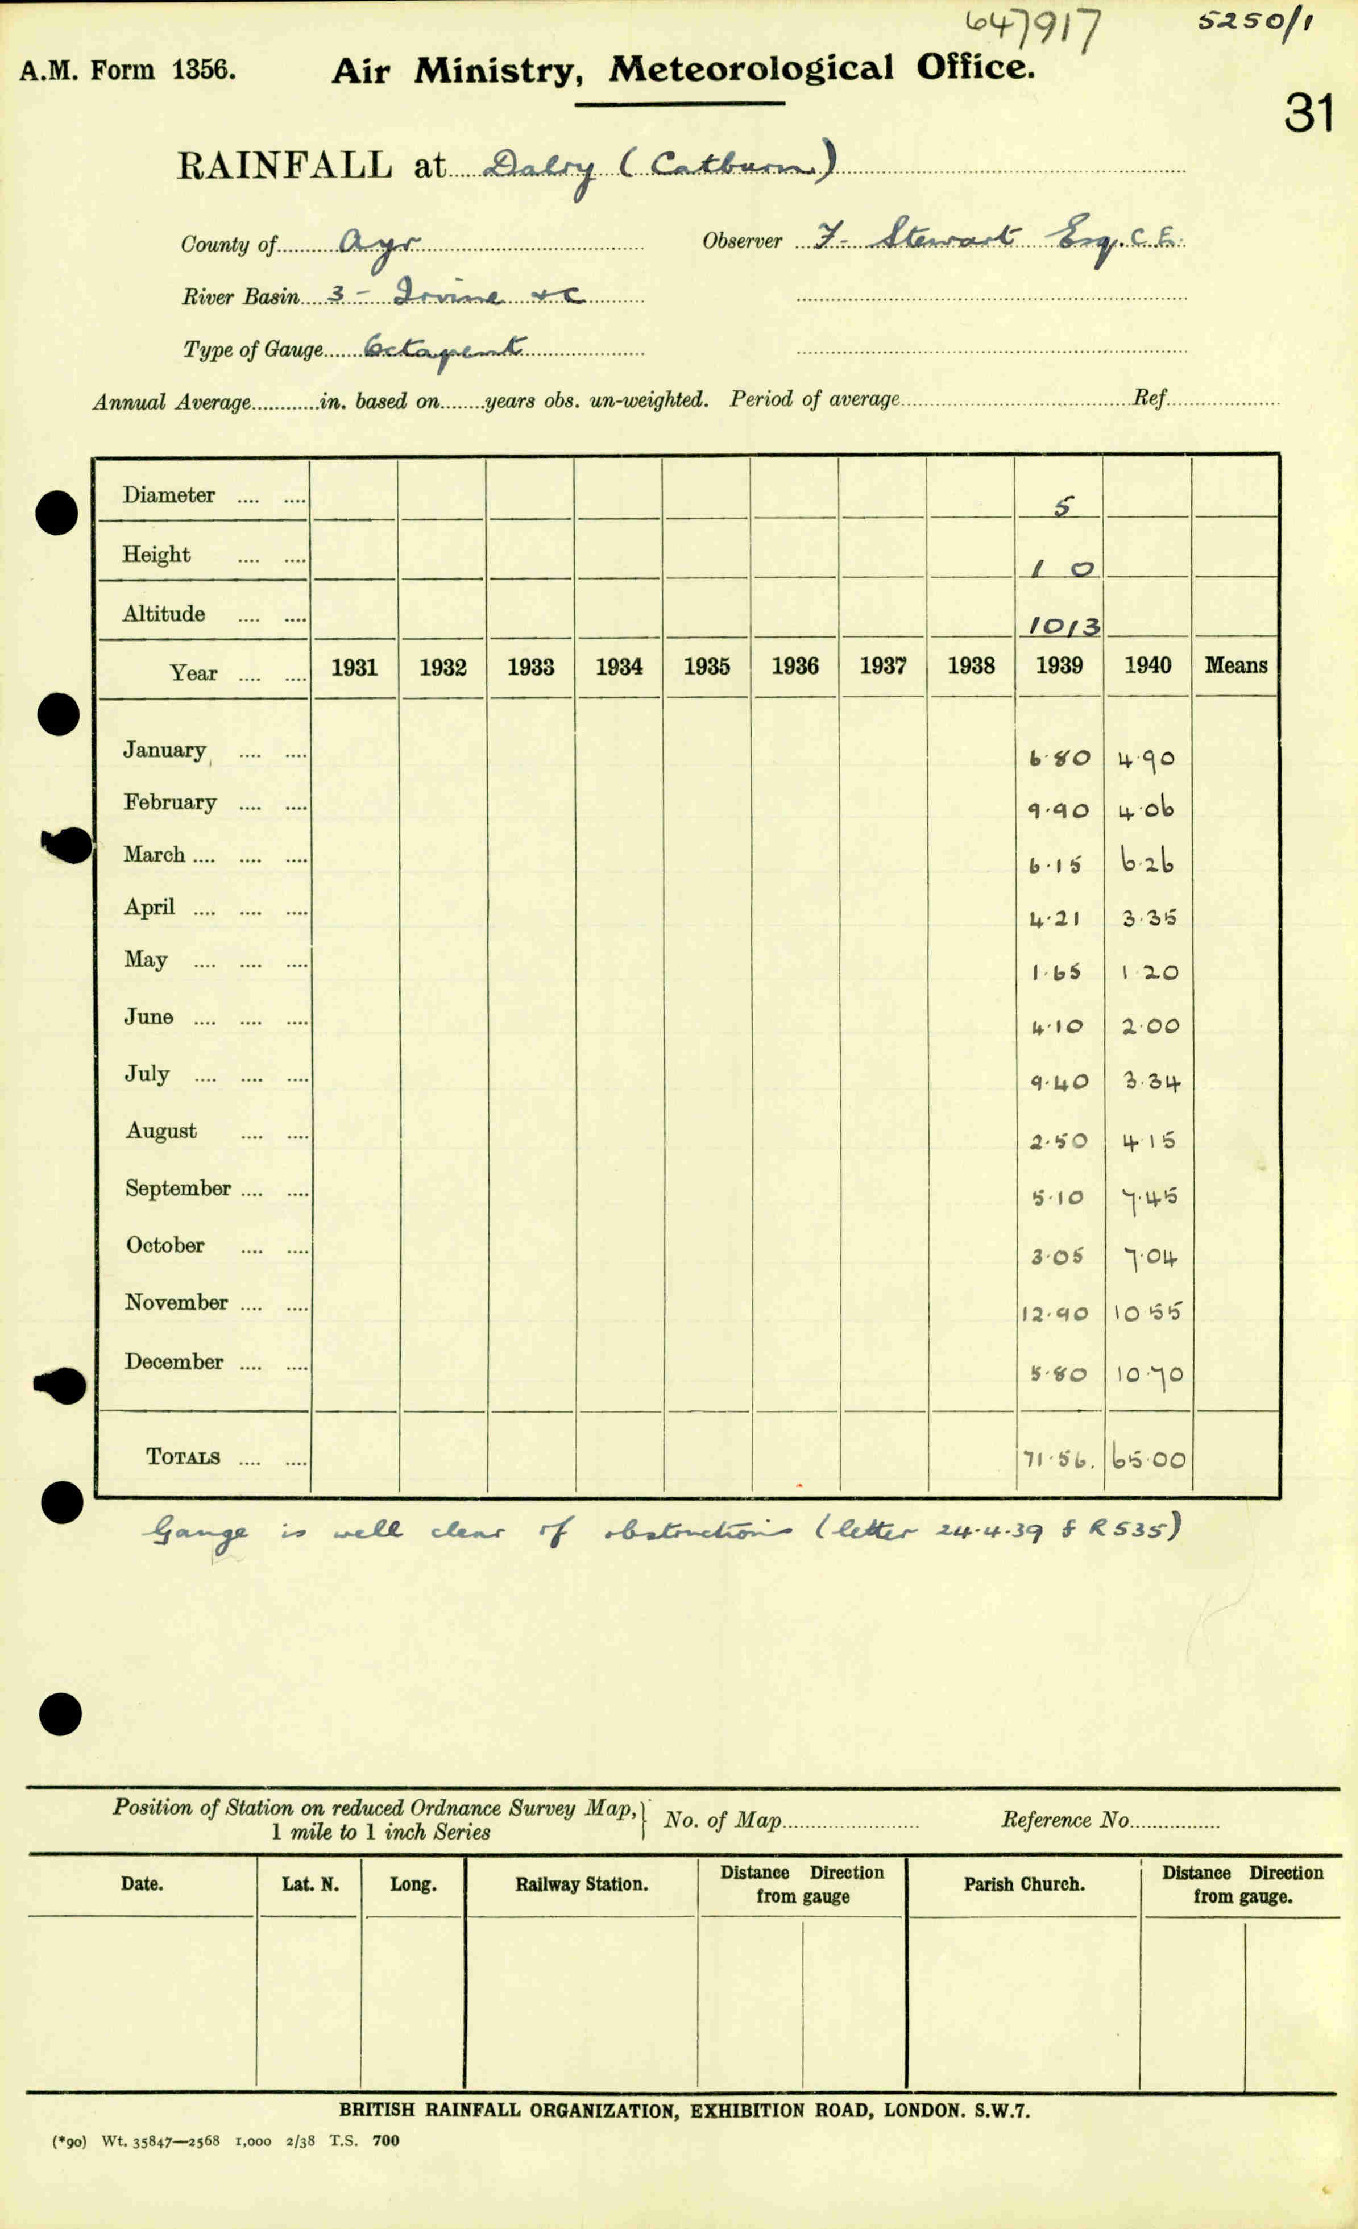 647917 5250/1
A.M. Form 1356. Air Ministry, Meteorological Office.
31
RAINFALL at Dalry (Catburn)
County of Ayr Observer F. Stewart Esq. C.E.
River Basin 3 - Irvine &C
Type of Gauge Octapent
Annual Average............in. based on........years obs. un-weighted. Period of average........ Ref........
Diameter .... .... 5
Height .... .... 1 0
Altitude .... .... 1013
Year .... .... 1931 1932 1933 1934 1935 1936 1937 1938 1939 1940 Means
January .... .... 6.80 4.90
February .... .... 9.90 4.06
March .... .... .... 6.15 6.26
April .... .... .... 4.21 3.35
May .... .... .... 1.65 1.20
June .... .... .... 4.10 2.00
July .... .... .... 9.40 3.34
August .... .... 2.50 4.15
September .... .... 5.10 7.45
October .... .... 3.05 7.04
November .... .... 12.90 10.55
December .... .... 5.80 10.70
TOTALS .... .... 71.56. 65.00
Gauge is well clear of obstructions (letter 24.4.39 & R535)
Position of Station on reduced Ordnance Survey Map, } No. of Map........ Reference No........
1 mile to 1 inch Series
Date. Lat. N. Long. Railway Station. Distance Direction from gauge Parish Church. Distance Direction from gauge.
BRITISH RAINFALL ORGANIZATION, EXHIBITION ROAD, LONDON. S.W.7.
(*90) Wt. 35847—2568 1,000 2/38 T.S. 700